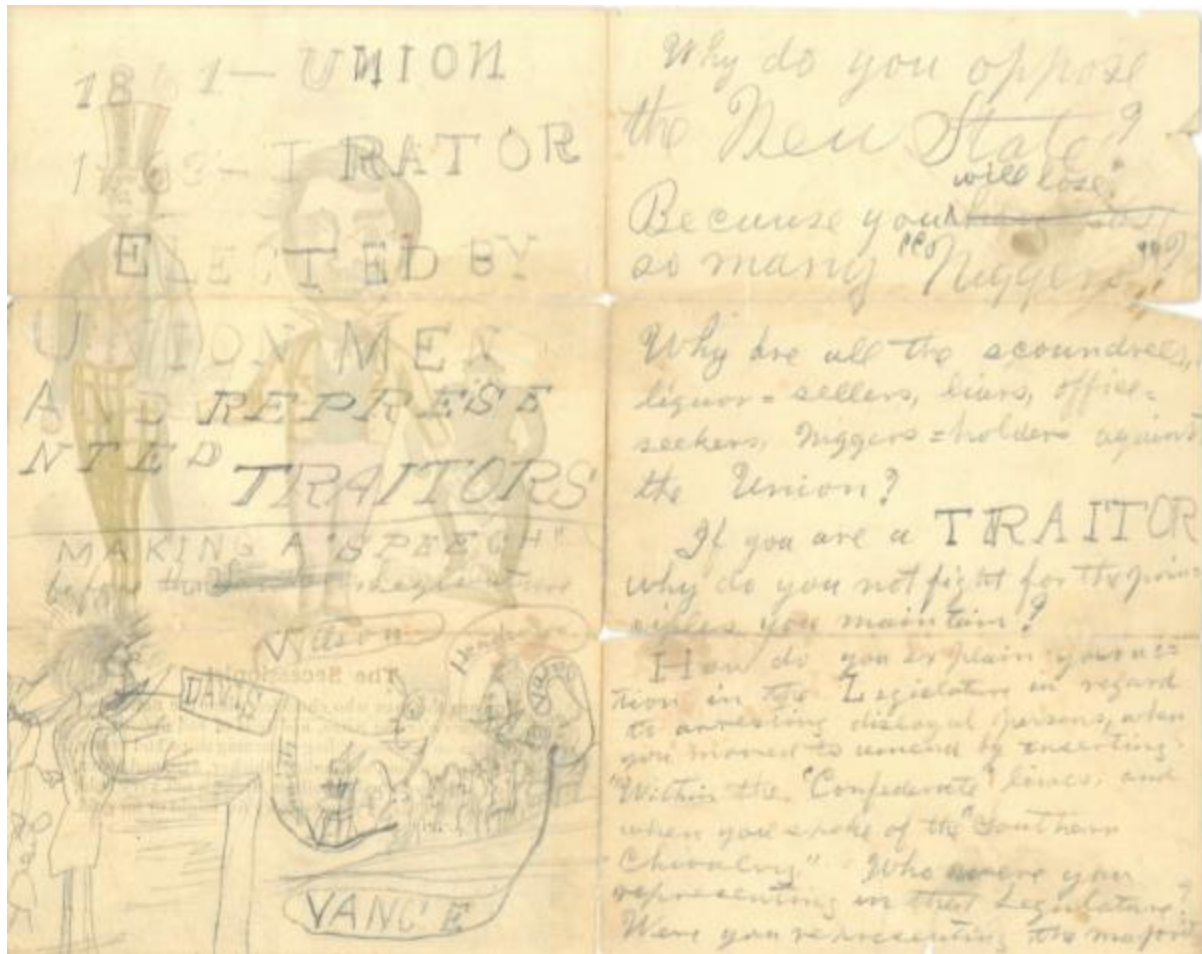 1861 — UNION
1863 — TRATOR
ELECTED BY
UNION MEN
AND REPRESE
NTED TRAITORS
MAKING A "SPEECH"
before the Legislature
Wilson
The Secessionist
DAVIS
VANCE
Why do you oppose
the New State?
will lose
Because you
so many "Niggers"?
Why are all the scoundrels,
liquor=sellers, liars, office=
seekers, Niggers=holders against
the Union?
If you are a TRAITOR
why do you not fight for the prin=
ciples you maintain?
How do you explain your ac=
tion in the Legislature in regard
to arresting disloyal persons, when
you moved to amend by inserting
"Within the "Confederate" lines, and
when you spoke of the "Southern
Chivalry" Who were you
representing in that Legislature?
Were you representing the